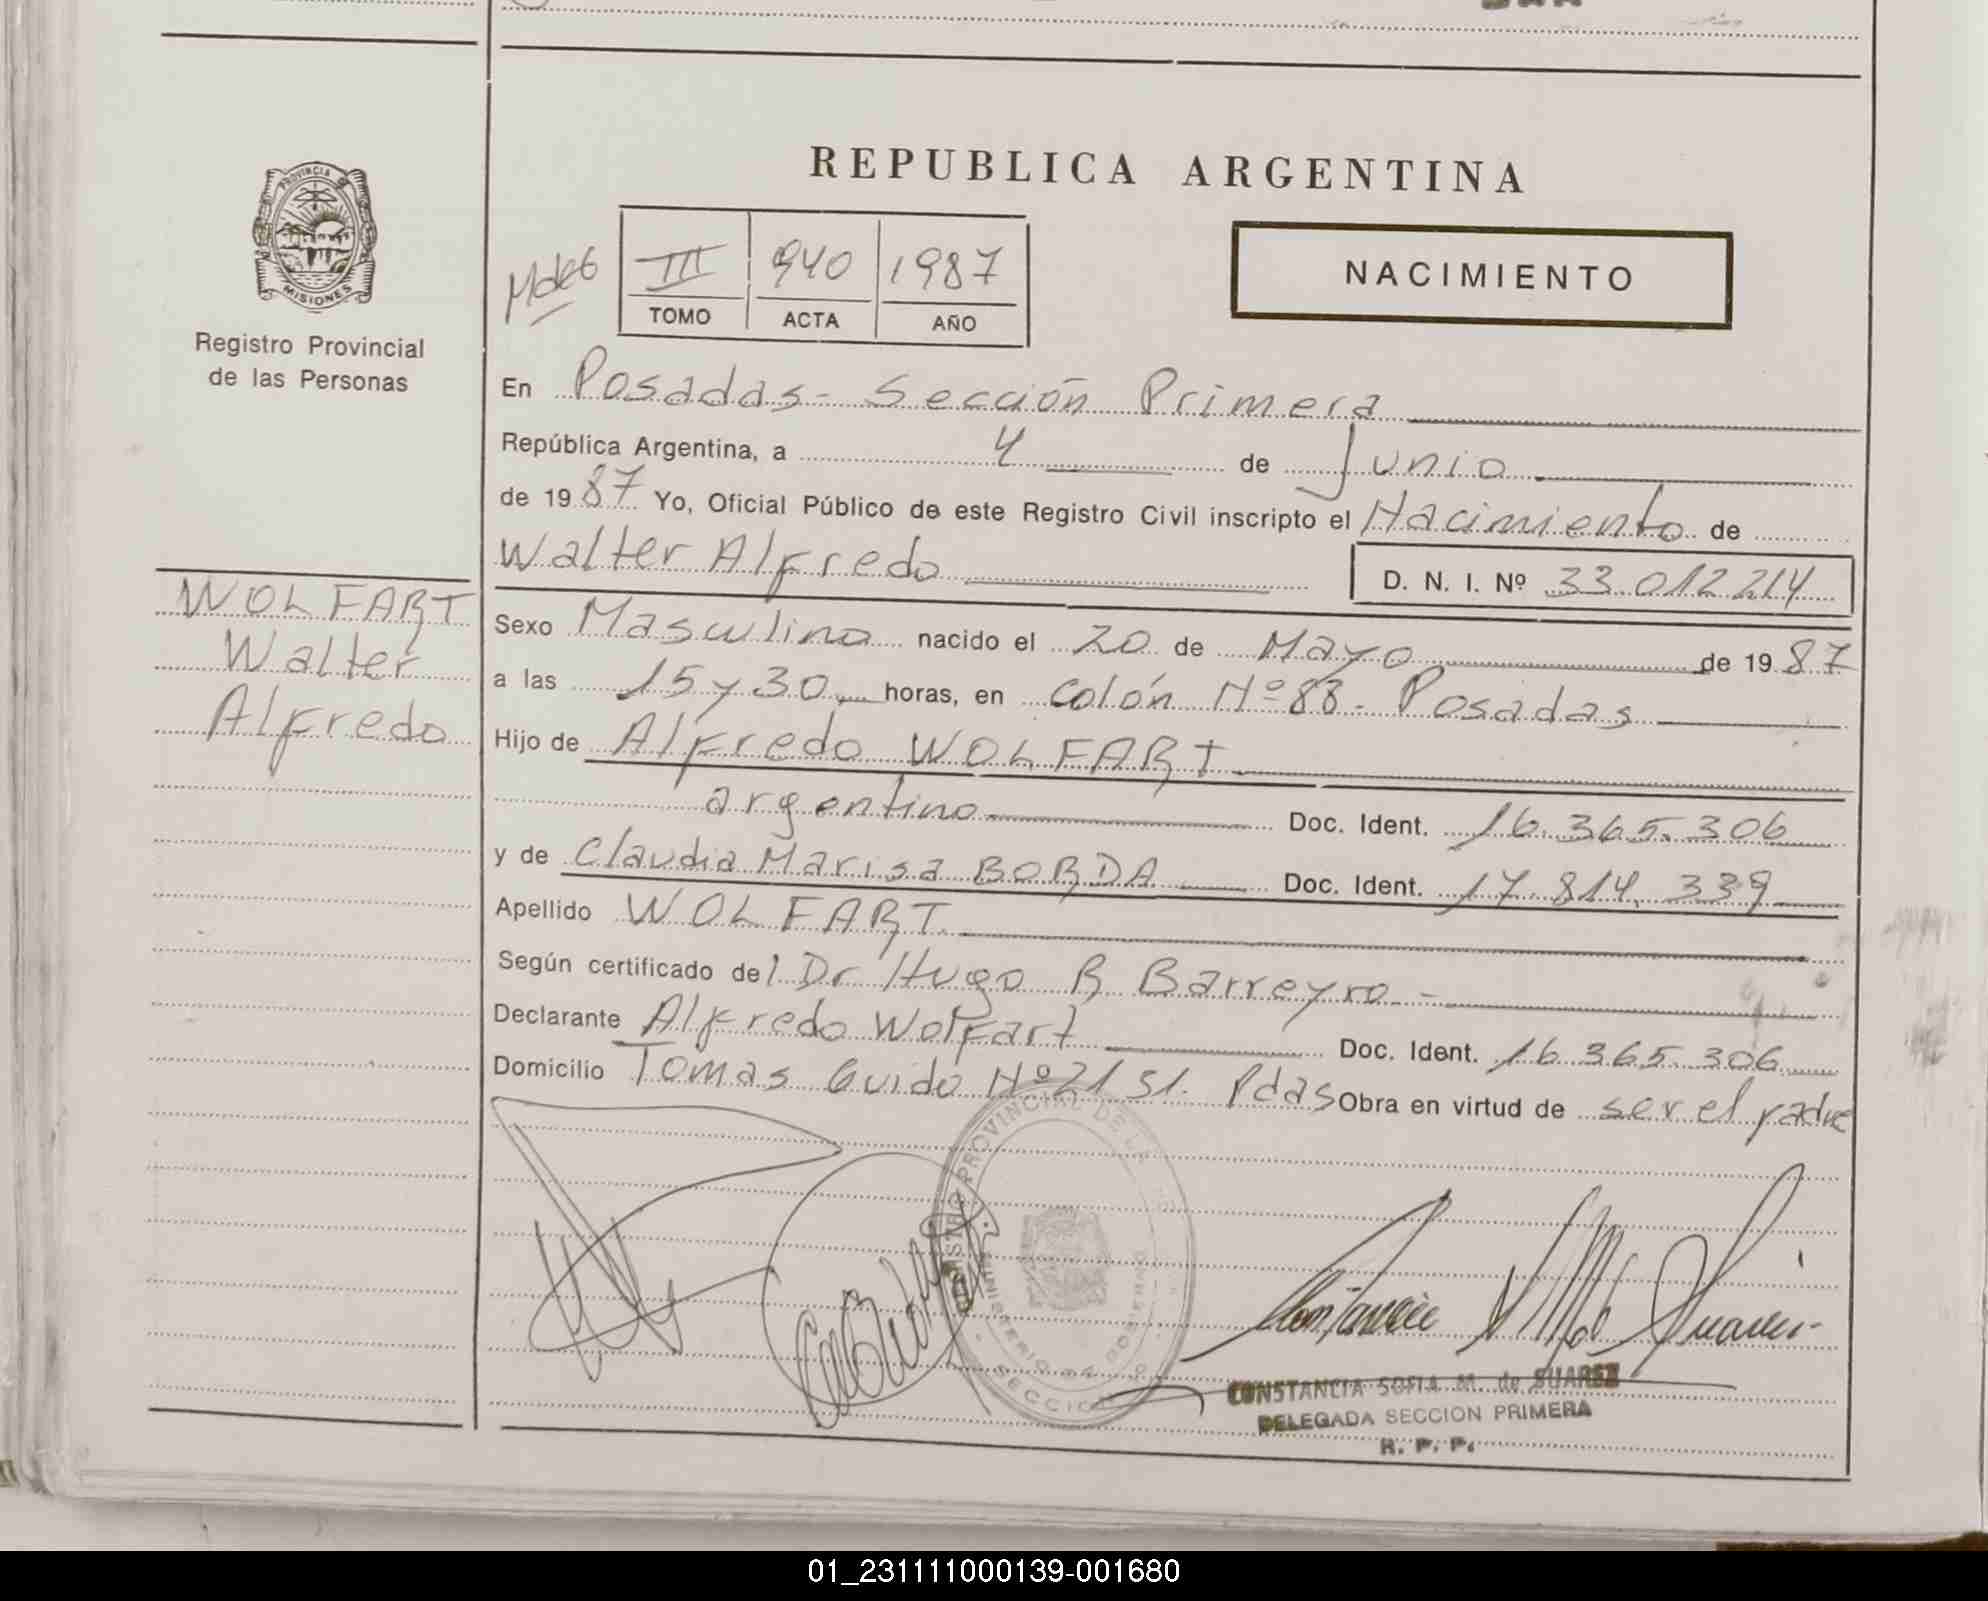 REPUBLICA ARGENTINA
PROVINCIA DE
MISIONES
Registro Provincial
de las Personas
III 940 1987
TOMO ACTA AÑO
NACIMIENTO
En Posadas - Sección Primera
República Argentina, a 4 de Junio
de 1987 Yo, Oficial Público de este Registro Civil inscripto el Nacimiento de
Walter Alfredo D. N. I. Nº 33.012.214
WOLFART
Walter
Alfredo
Sexo Masculino nacido el 20 de Mayo de 1987
a las 15 y 30 horas, en Colón Nº 88 - Posadas
Hijo de Alfredo WOLFART
argentino Doc. Ident. 16.365.306
y de Claudia Marisa BORDA Doc. Ident. 17.814.339
Apellido WOLFART
Según certificado del Dr Hugo R Barreyro -
Declarante Alfredo Wolfart Doc. Ident. 16.365.306
Domicilio Tomas Guido Nº 21 S1. Pdas Obra en virtud de ser el padre
REGISTRO PROVINCIAL DE LAS
MINISTERIO DE GOBIERNO
SECCION
CONSTANCIA SOFIA M. de SUAREZ
DELEGADA SECCION PRIMERA
R. P. P.
01_231111000139-001680